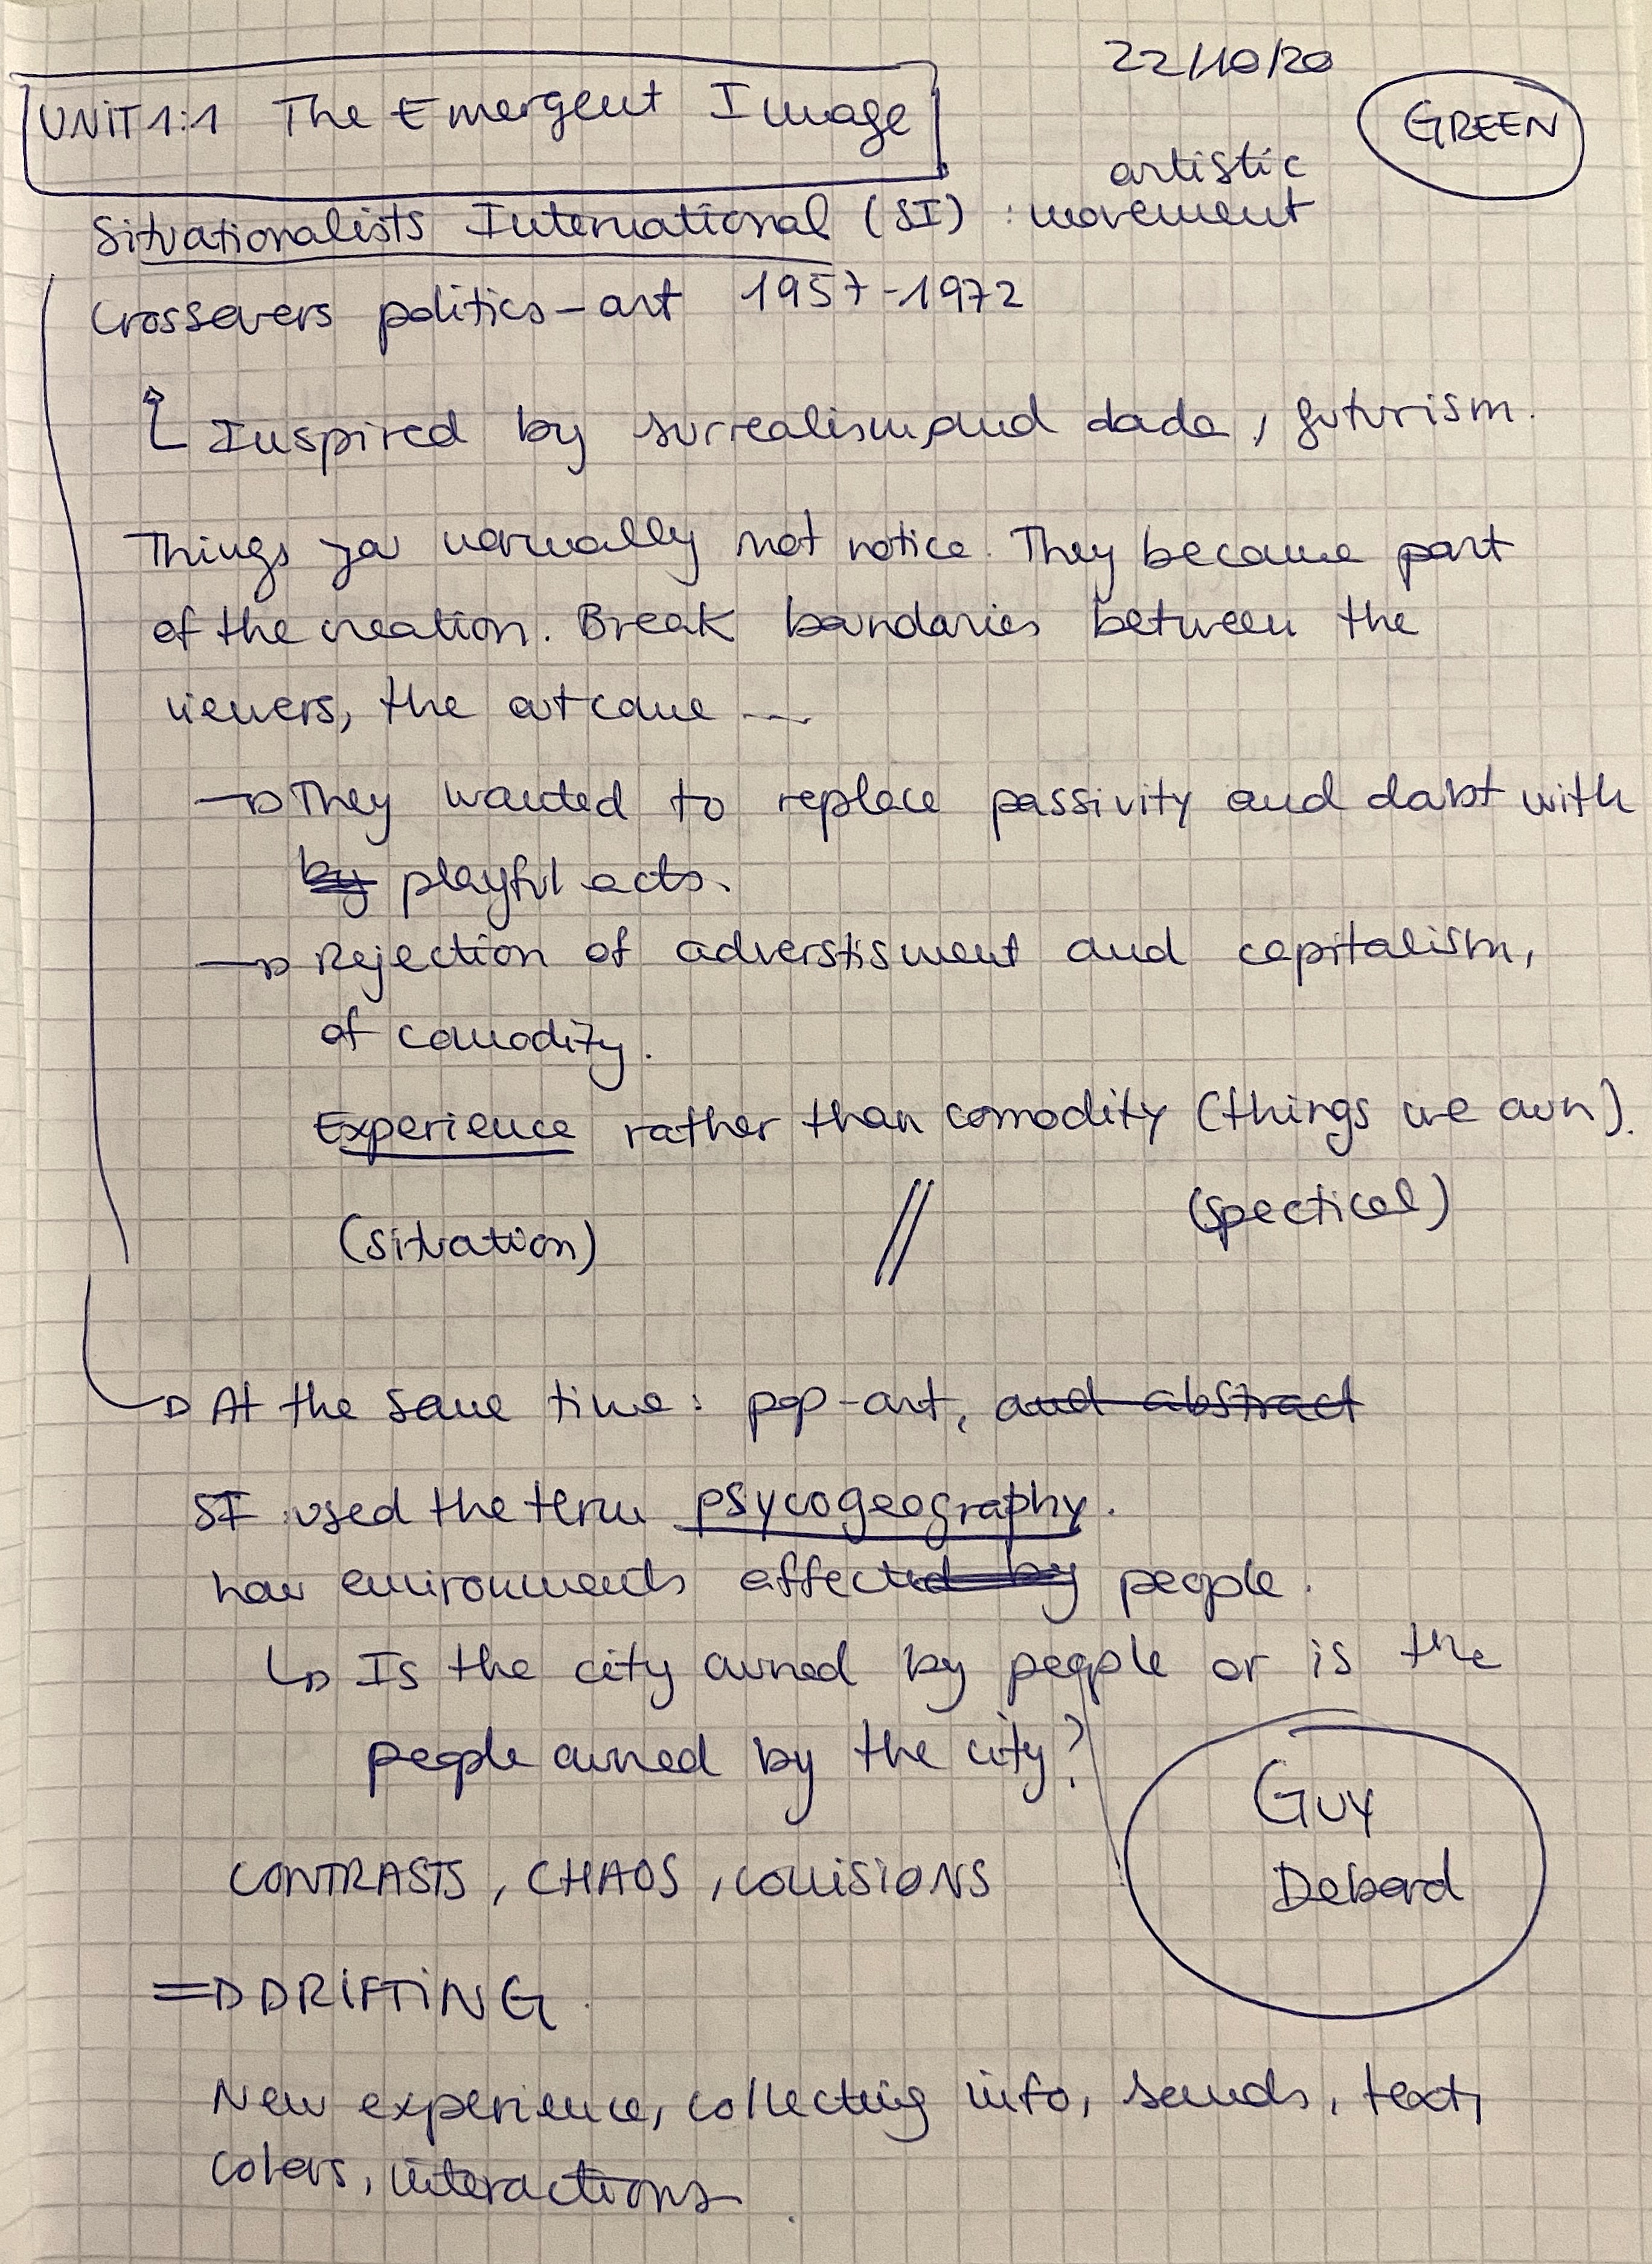 22/10/20
UNIT 1:1 The Emergent Image
GREEN
artistic
Situationalists International (SI) : movement
Crossovers politics-art 1957-1972
Inspired by surrealism, and dada, futurism.
Things you normally not notice. They became part
of the creation. Break boundaries between the
viewers, the outcome ...
→ They wanted to replace passivity and doubt with
by playful acts.
→ Rejection of adverstisment and capitalism,
of comodity.
Experience rather than comodity (things we own).
(situation) // (spectical)
→ At the same time: pop-art, and abstract
SI used the term psycogeography.
how environments affected by people.
↳ Is the city owned by people or is the
people owned by the city?
Guy
Debord
CONTRASTS, CHAOS, COLLISIONS
⇒ DRIFTING
New experience, collecting info, sounds, text,
colors, interactions.